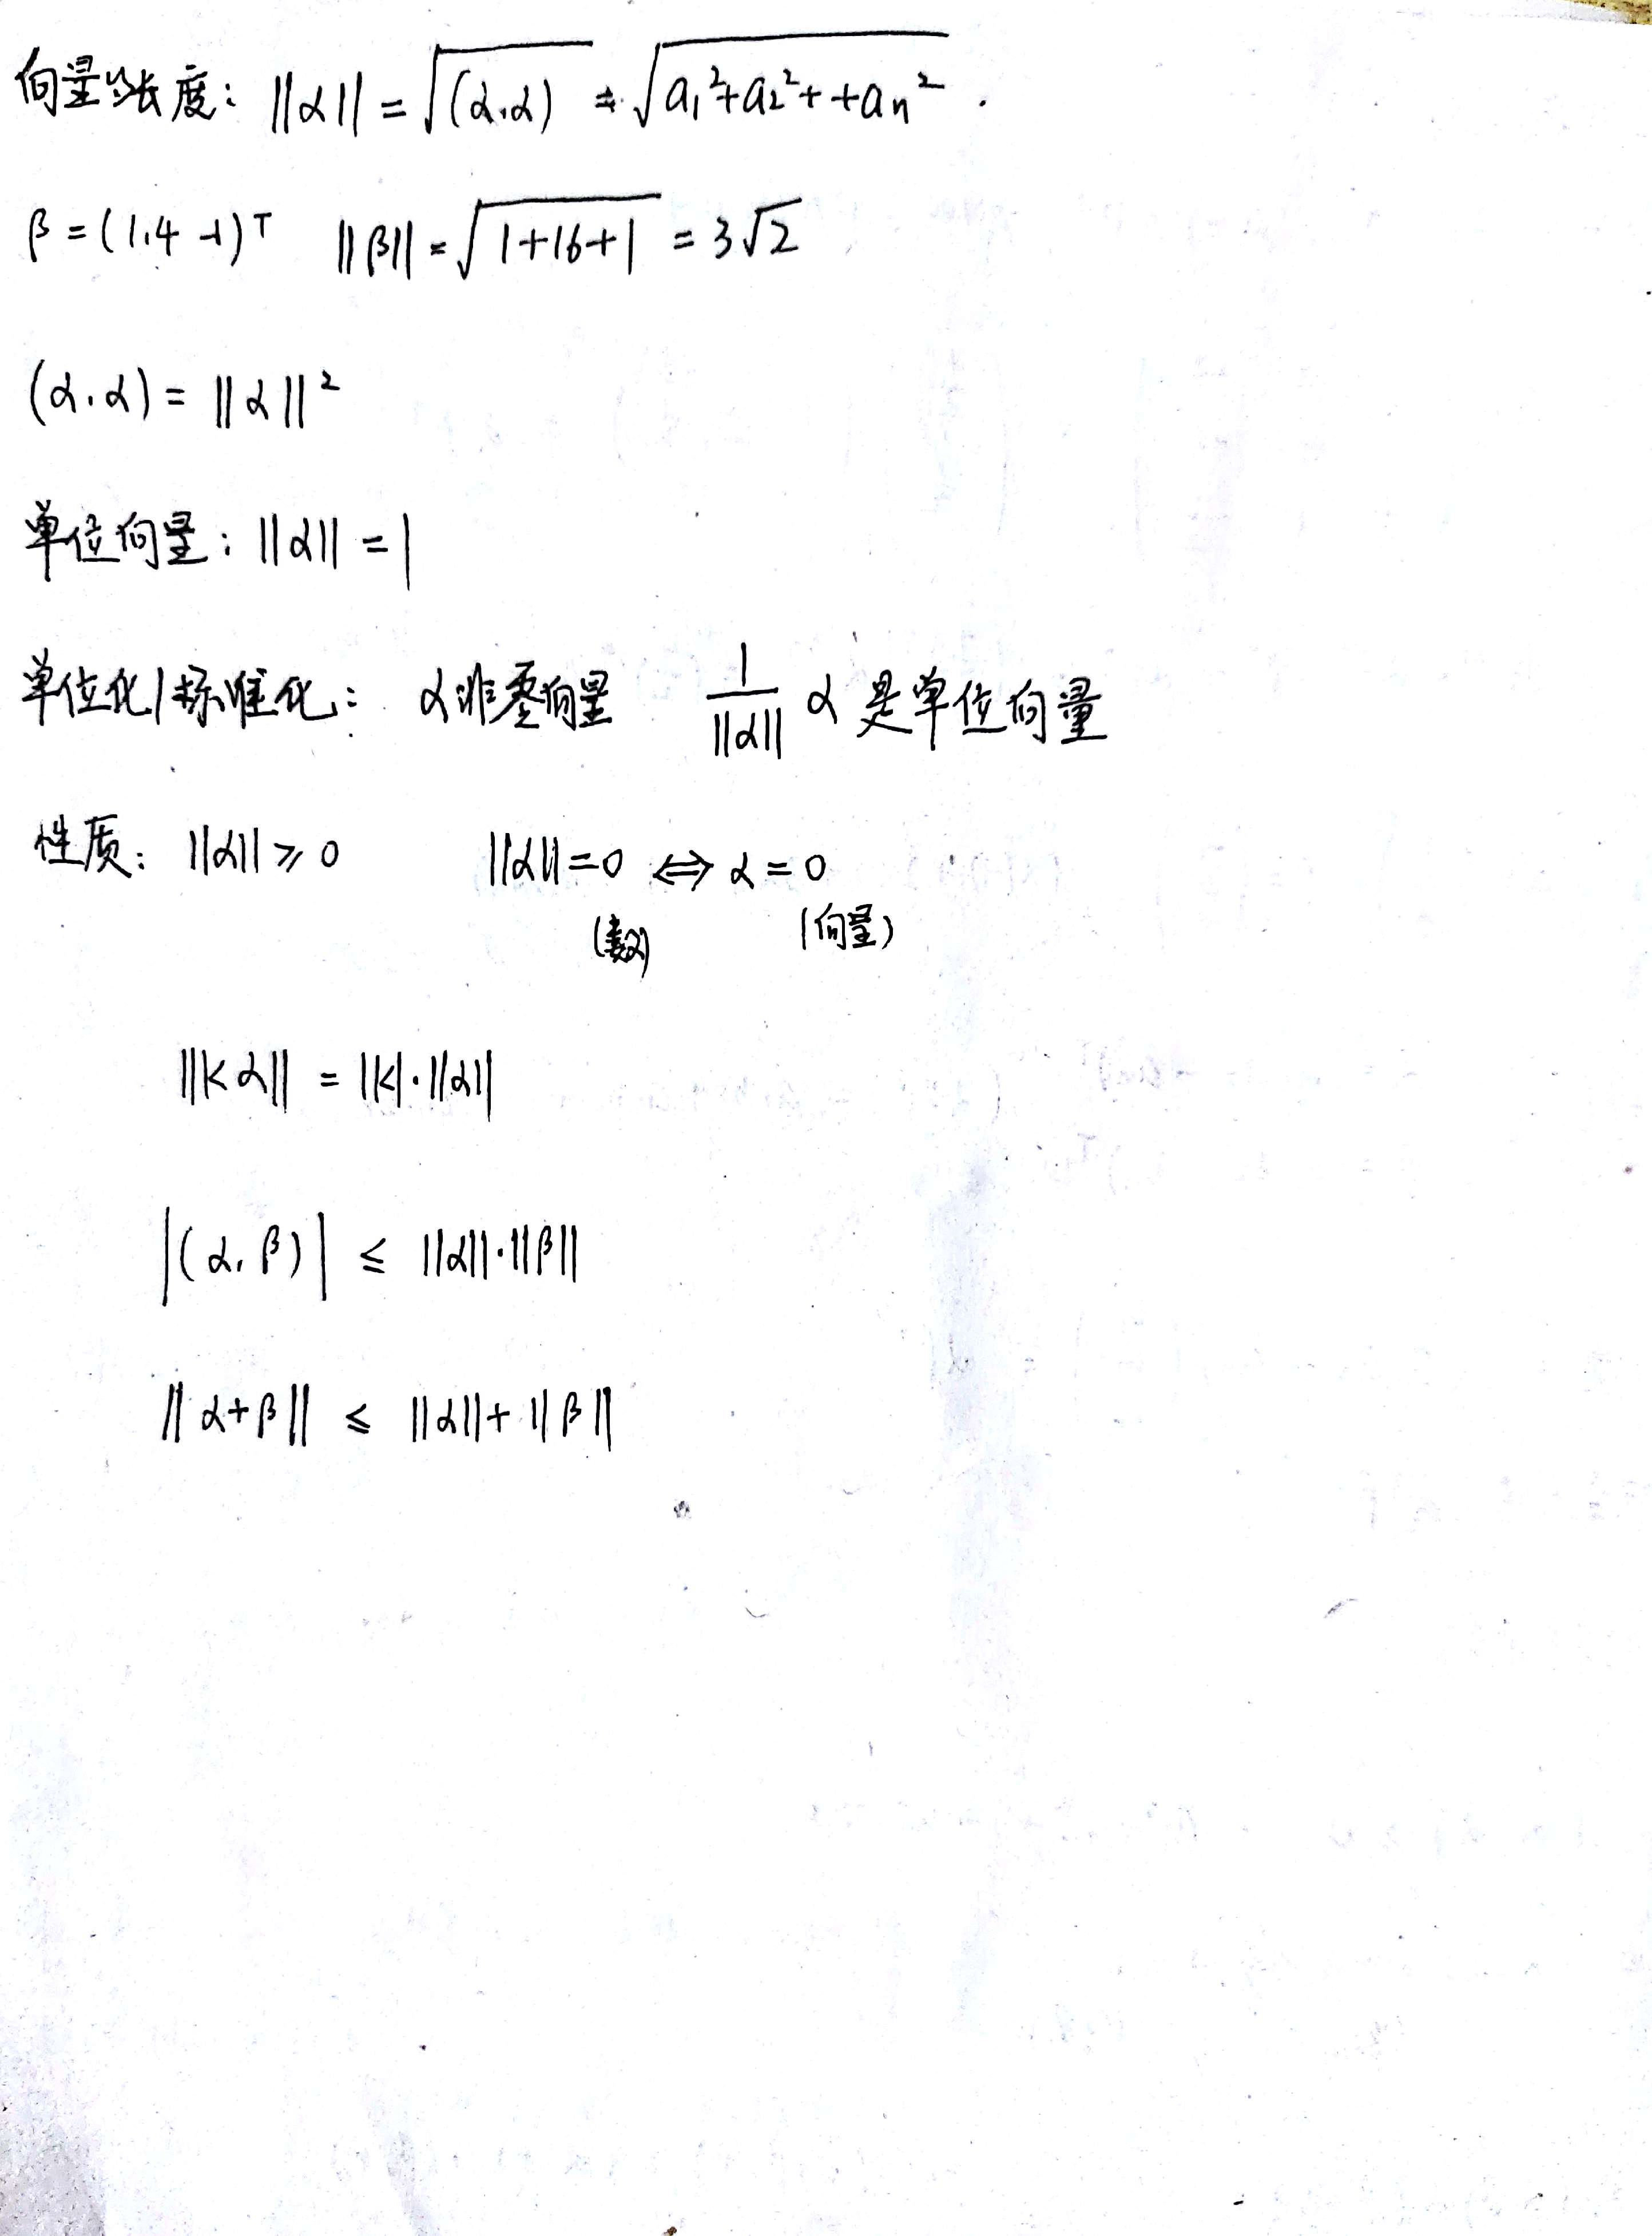 向量的长度: ||α|| = √(α,α) = √a₁²+a₂²+ +aₙ² .
β = (1,4 -1)ᵀ ||β|| = √1+16+1 = 3√2
(α,α) = ||α||²
单位向量: ||α|| = 1
单位化/标准化: α非零向量 1/||α|| α 是单位向量
性质: ||α|| ≥ 0 ||α|| = 0 ⇔ α = 0
(数) (向量)
||kα|| = |k|·||α||
|(α,β)| ≤ ||α||·||β||
||α+β|| ≤ ||α||+||β||